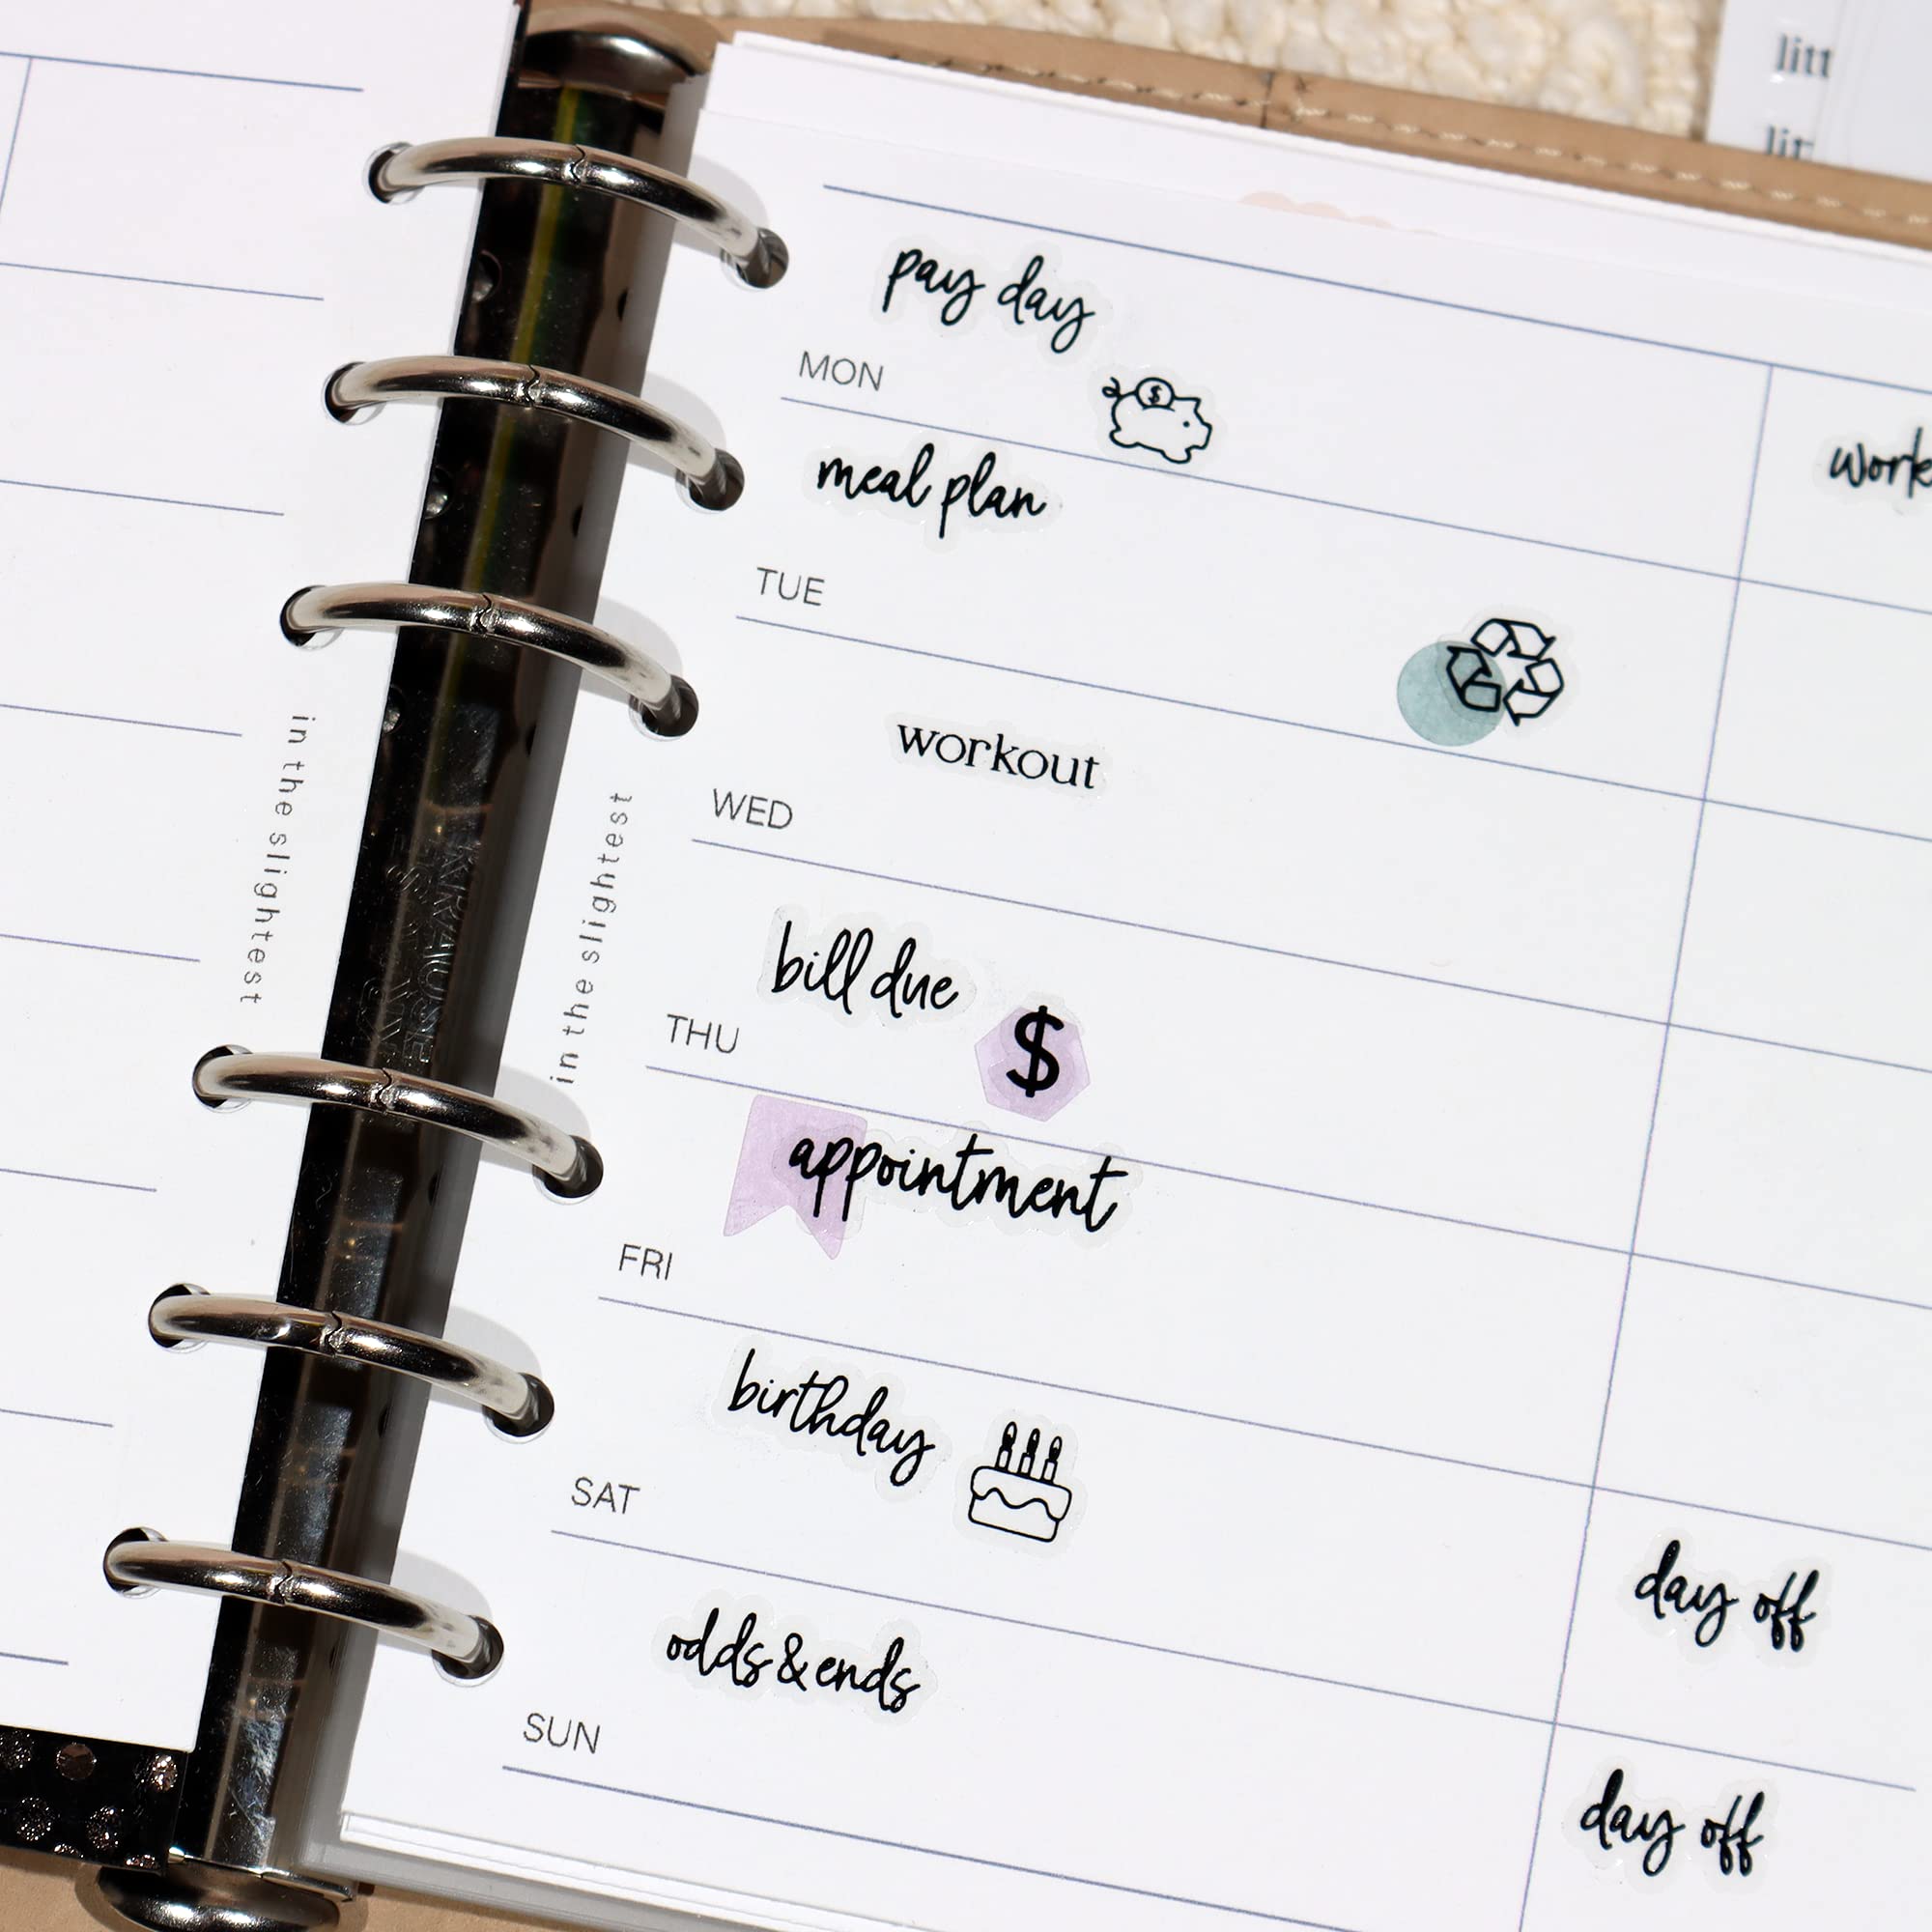 litt
pay day
MON
$
work
meal plan
TUE
workout
WED
in the slightest
in the slightest
KRAUSE
bill due
$
THU
appointment
FRI
birthday
SAT
day off
odds & ends
SUN
day off